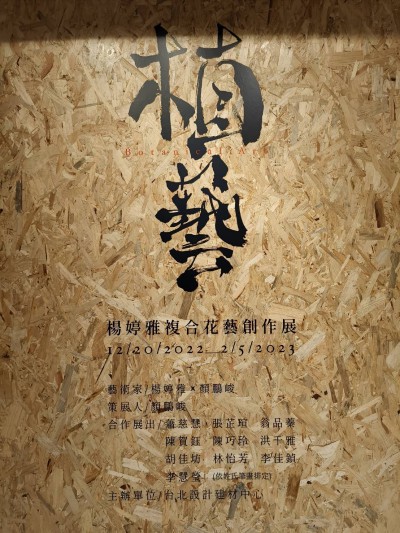 植藝
Botanical Art
楊婷雅複合花藝創作展
12/20/2022—2/5/2023
藝術家/楊婷雅×顏鵬峻
策展人/顏鵬峻
合作展出/蕭慈慧 張芷瑄 翁品蓁
陳貿鈺 陳巧玲 洪千雅
胡佳坊 林怡芳 李佳鎮
李慧瑩 (依姓氏筆畫排定)
主辦單位/台北設計建材中心